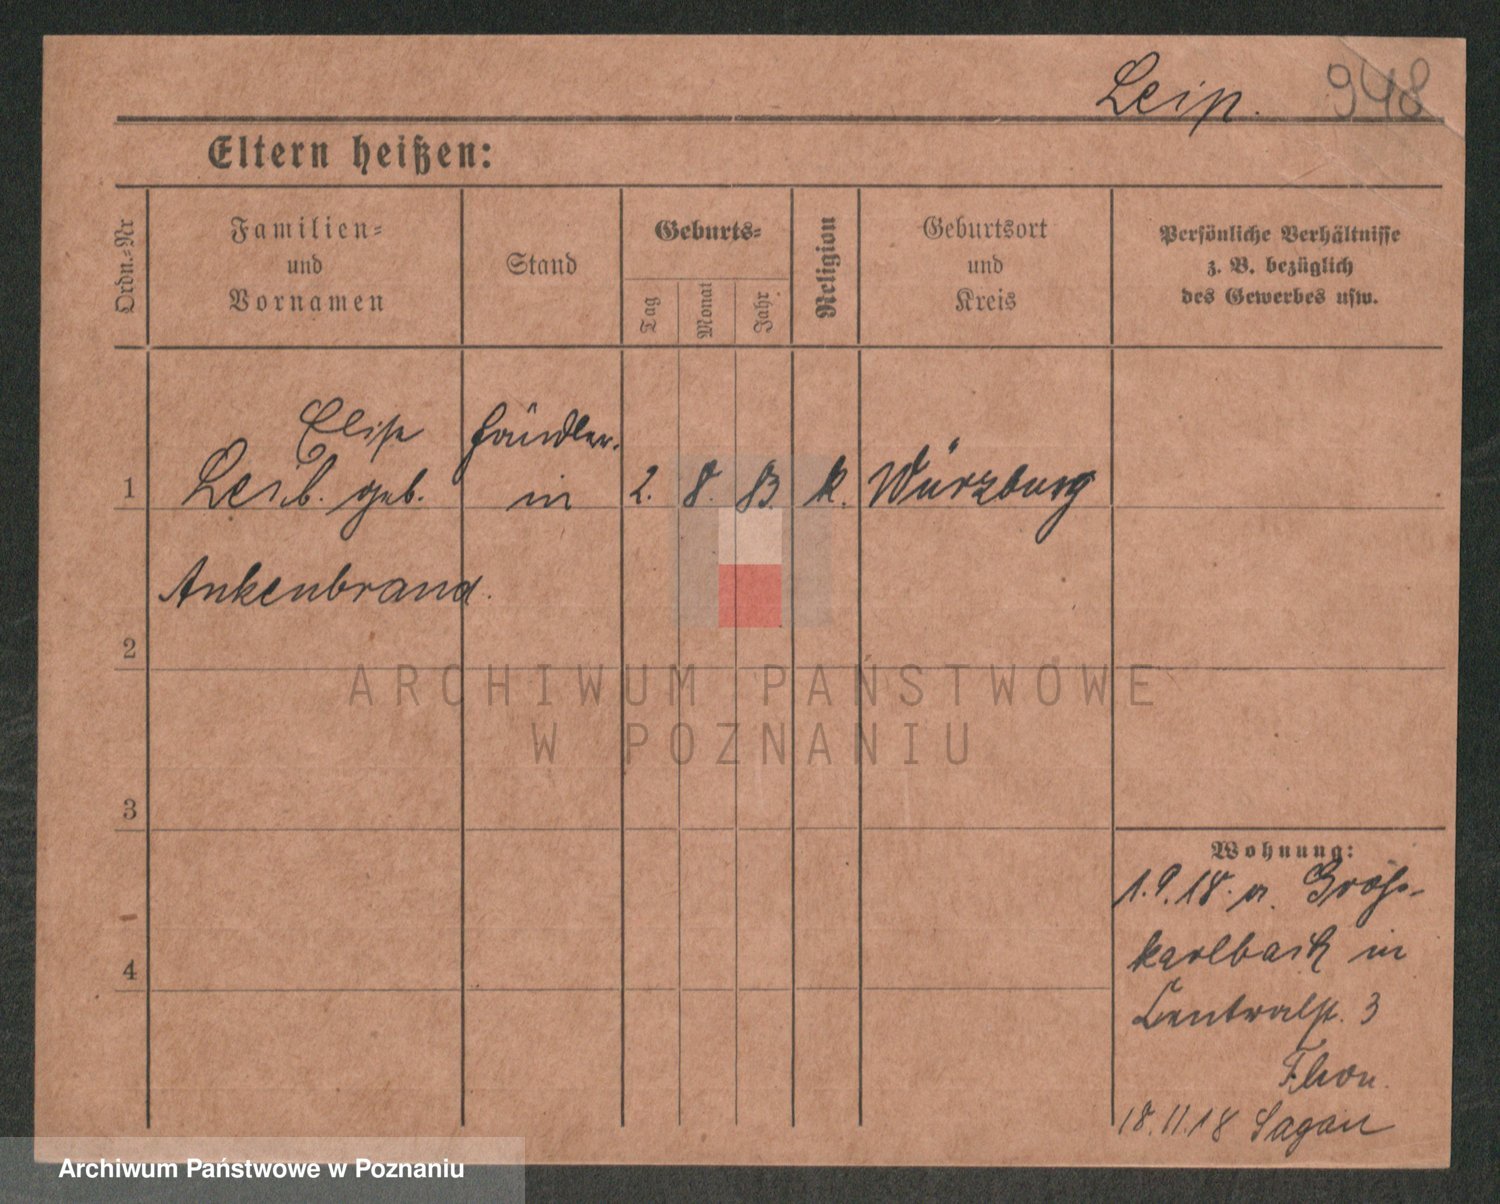 Leip. 948
Eltern heißen:
Ordn.-Nr
Familien-
und
Vornamen
Stand
Geburts-
Tag
Monat
Jahr
Religion
Geburtsort
und
Kreis
Persönliche Verhältnisse
z. B. bezüglich
des Gewerbes usw.
Elise Händler-
1 Leib. geb. in 2. 8. 83. k. Würzburg
Ankenbrand.
2
ARCHIWUM PAŃSTWOWE
W POZNANIU
3
Wohnung:
1.9.18. n. Gross-
karlbach in
4
Centralst. 3
18.11.18 Sagan
Archiwum Państwowe w Poznaniu